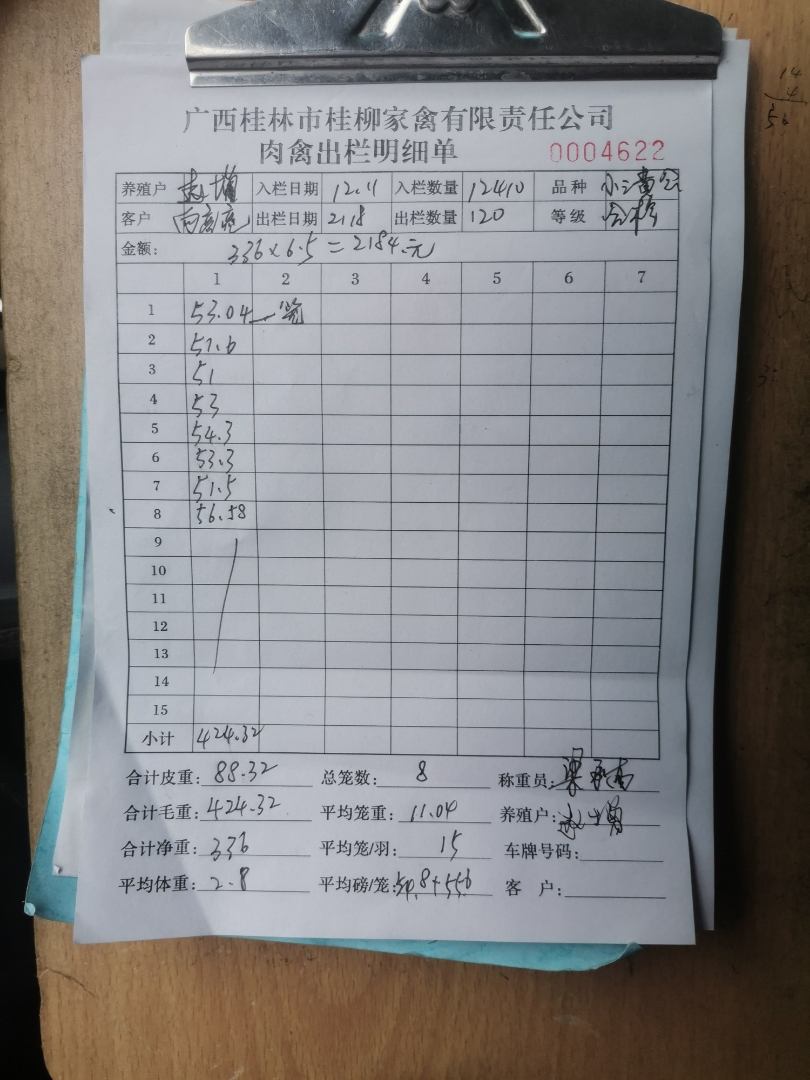 广西桂林市桂柳家禽有限责任公司
肉禽出栏明细单 0004622
养殖户 入栏日期 12.11 入栏数量 12410 品种
客户 出栏日期 2.18 出栏数量 120 等级 合格
金额: 336×6.5=2184.元
1 2 3 4 5 6 7
1 53.04 一笼
2 51.6
3 51
4 53
5 54.3
6 53.3
7 51.5
8 56.58
9
10
11
12
13
14
15
小计 424.32
合计皮重: 88.32 总笼数: 8 称重员:
合计毛重: 424.32 平均笼重: 11.04 养殖户:
合计净重: 336 平均笼/羽: 15 车牌号码:
平均体重: 2.8 平均磅/笼: 客 户:
14
4
56